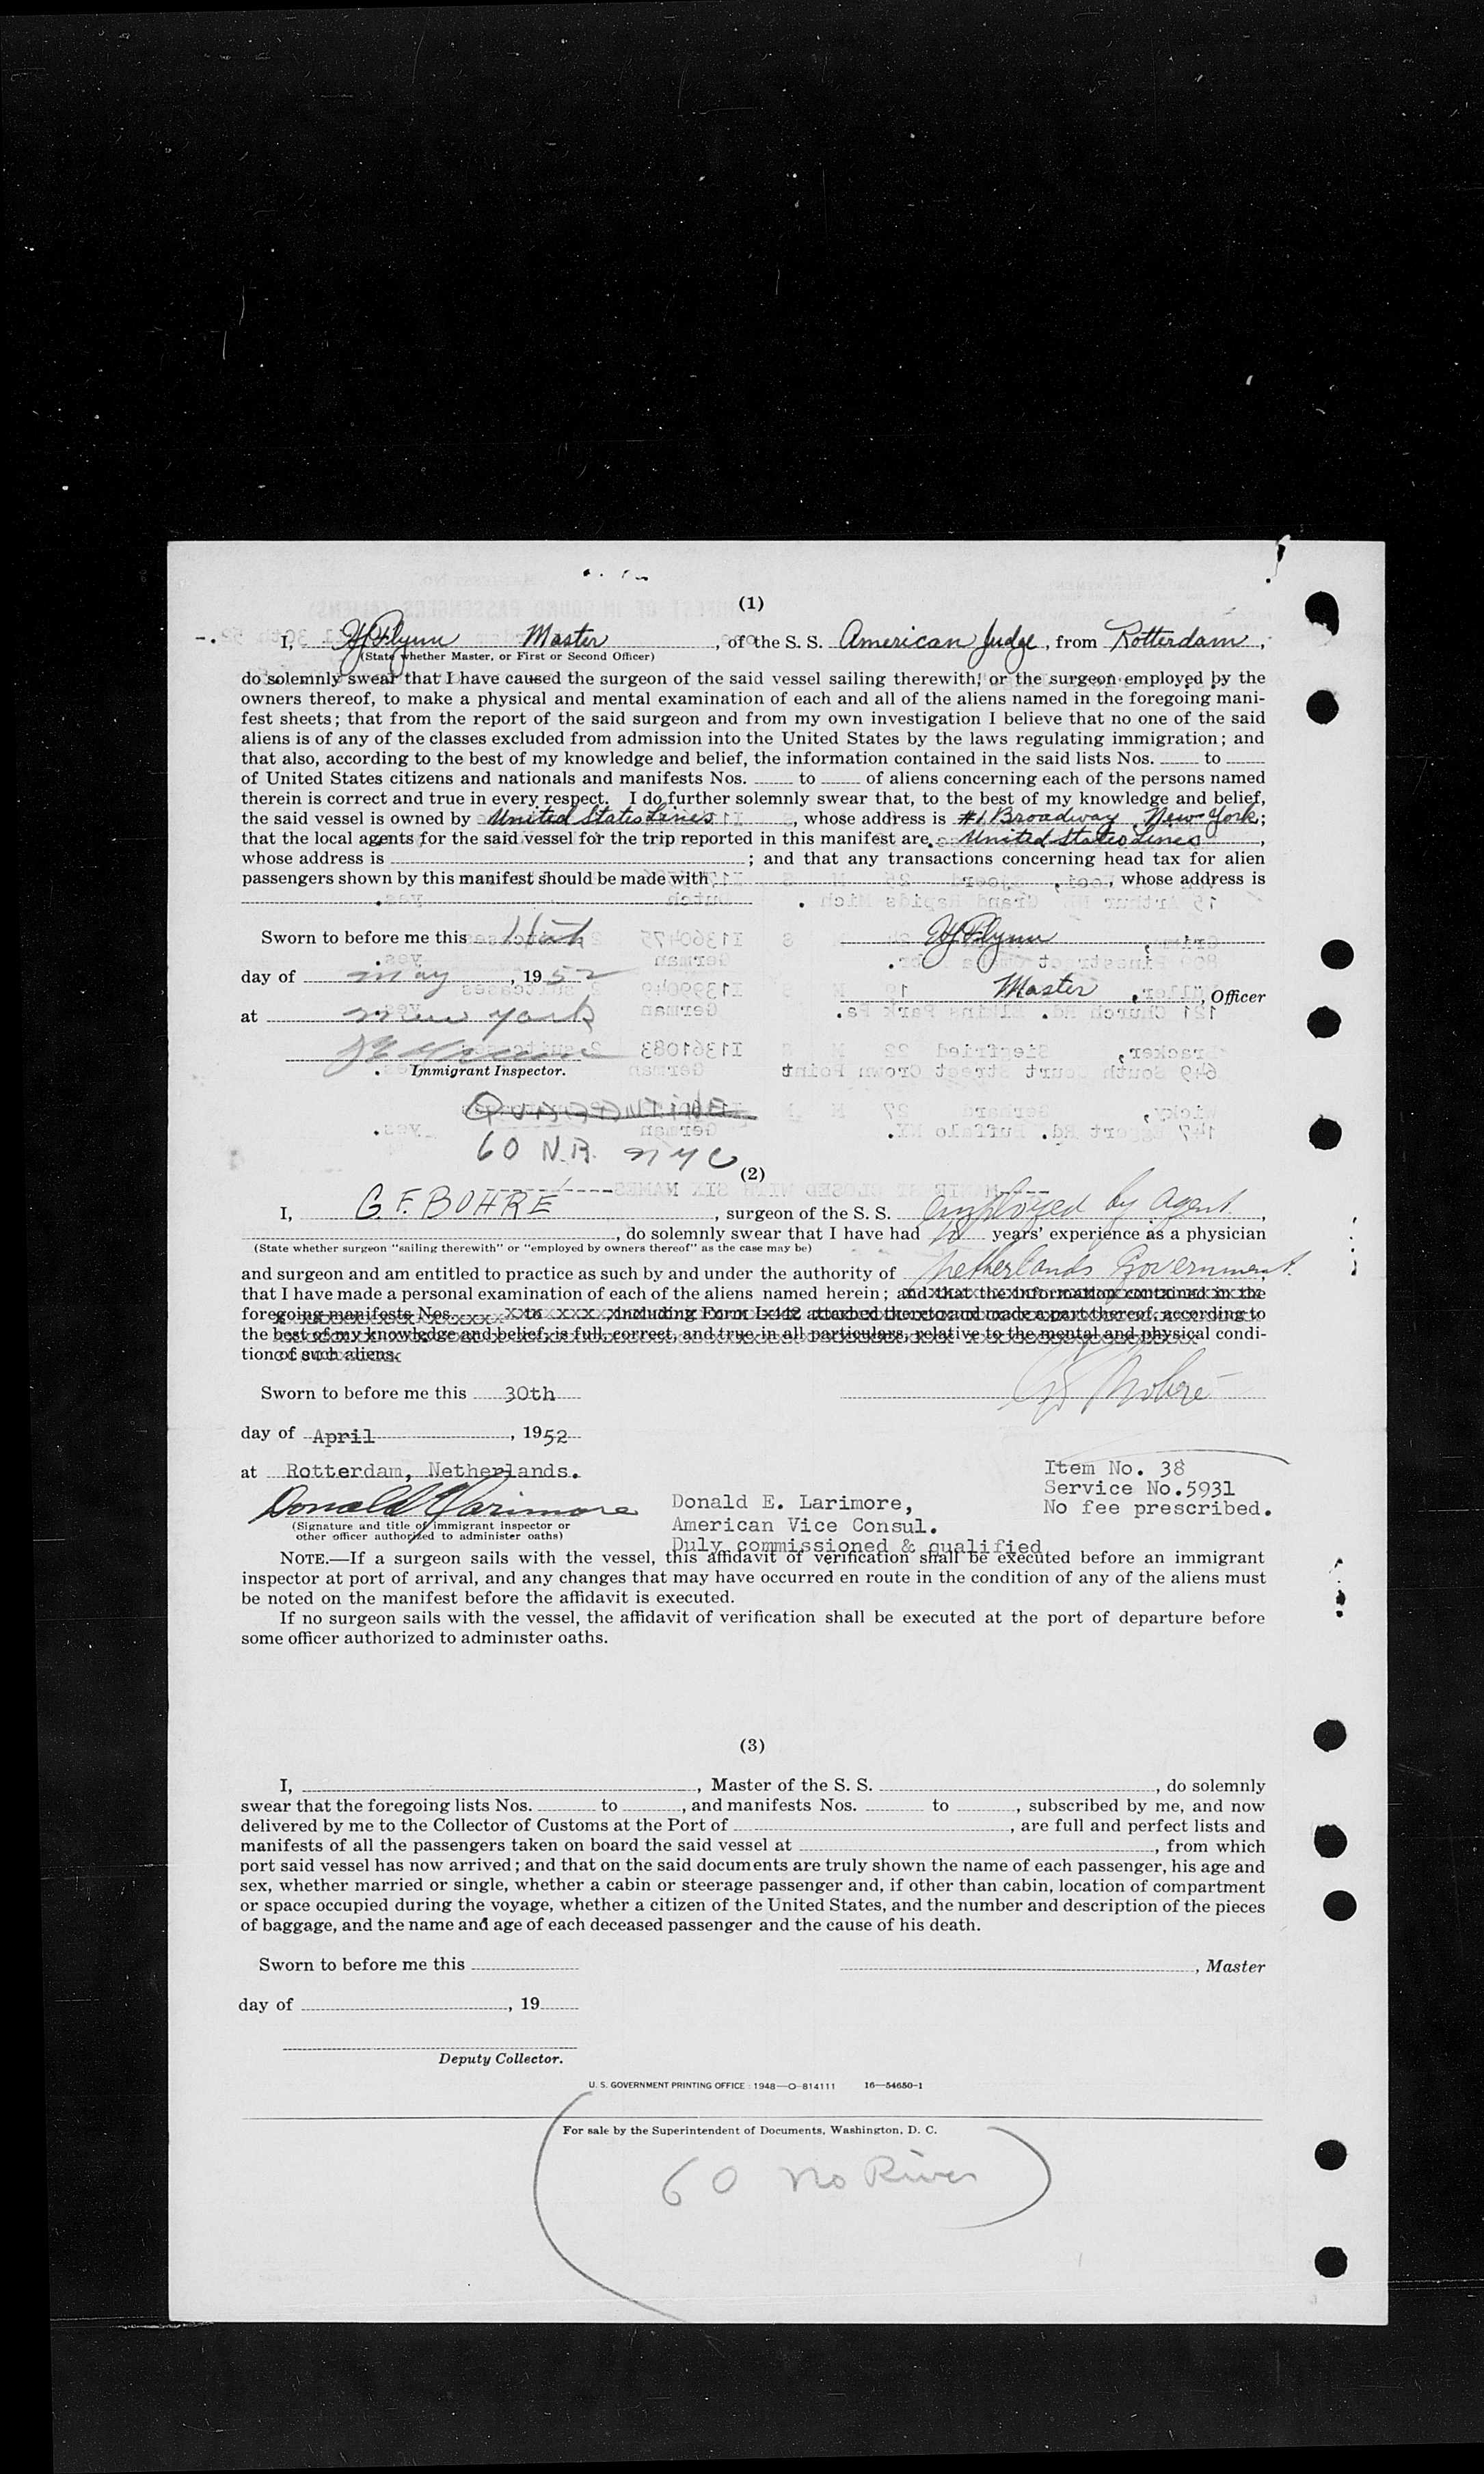 (1)
I, Flynn Master, of the S. S. American Judge, from Rotterdam,
(State whether Master, or First or Second Officer)
do solemnly swear that I have caused the surgeon of the said vessel sailing therewith, or the surgeon employed by the
owners thereof, to make a physical and mental examination of each and all of the aliens named in the foregoing mani-
fest sheets; that from the report of the said surgeon and from my own investigation I believe that no one of the said
aliens is of any of the classes excluded from admission into the United States by the laws regulating immigration; and
that also, according to the best of my knowledge and belief, the information contained in the said lists Nos. to
of United States citizens and nationals and manifests Nos. to of aliens concerning each of the persons named
therein is correct and true in every respect. I do further solemnly swear that, to the best of my knowledge and belief,
the said vessel is owned by United States Lines, whose address is #1 Broadway, New York;
that the local agents for the said vessel for the trip reported in this manifest are United States Lines,
whose address is ; and that any transactions concerning head tax for alien
passengers shown by this manifest should be made with , whose address is
Sworn to before me this Flynn
day of May, 1952
Master, Officer
at New York
Immigrant Inspector.
60 N.R. NYC
(2)
I, G.F. BOHRÉ, surgeon of the S. S. employed by agent,
, do solemnly swear that I have had years' experience as a physician
(State whether surgeon "sailing therewith" or "employed by owners thereof" as the case may be)
and surgeon and am entitled to practice as such by and under the authority of Netherlands Government.
that I have made a personal examination of each of the aliens named herein; and that the information contained in the
foregoing manifests Nos. to including Form I-442 attached thereto and made a part thereof, according to
the best of my knowledge and belief, is full, correct, and true in all particulars, relative to the mental and physical condi-
tion of such aliens.
Sworn to before me this 30th
day of April, 1952
at Rotterdam, Netherlands.
Item No. 38
Service No.5931
No fee prescribed.
Donald E. Larimore
(Signature and title of immigrant inspector or
other officer authorized to administer oaths)
Donald E. Larimore,
American Vice Consul.
Duly commissioned & qualified
NOTE.—If a surgeon sails with the vessel, this affidavit of verification shall be executed before an immigrant
inspector at port of arrival, and any changes that may have occurred en route in the condition of any of the aliens must
be noted on the manifest before the affidavit is executed.
If no surgeon sails with the vessel, the affidavit of verification shall be executed at the port of departure before
some officer authorized to administer oaths.
(3)
I, , Master of the S. S. , do solemnly
swear that the foregoing lists Nos. to , and manifests Nos. to , subscribed by me, and now
delivered by me to the Collector of Customs at the Port of , are full and perfect lists and
manifests of all the passengers taken on board the said vessel at , from which
port said vessel has now arrived; and that on the said documents are truly shown the name of each passenger, his age and
sex, whether married or single, whether a cabin or steerage passenger and, if other than cabin, location of compartment
or space occupied during the voyage, whether a citizen of the United States, and the number and description of the pieces
of baggage, and the name and age of each deceased passenger and the cause of his death.
Sworn to before me this , Master
day of , 19
Deputy Collector.
U. S. GOVERNMENT PRINTING OFFICE : 1948—O-814111 16—54650-1
For sale by the Superintendent of Documents, Washington, D. C.
60 No River